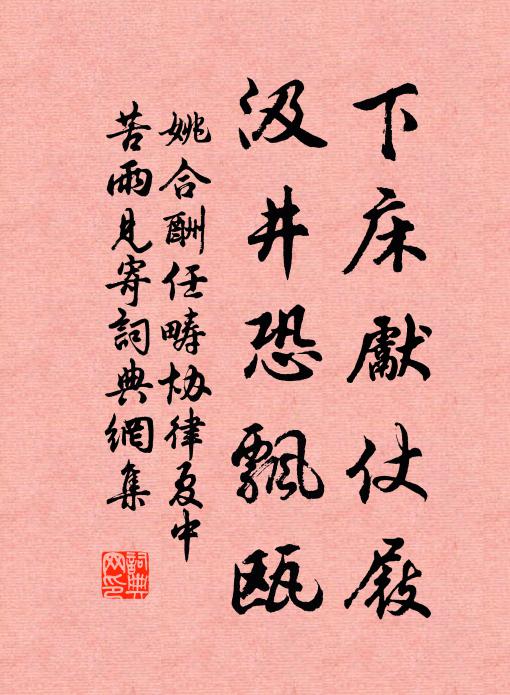 下床獻仗屐
汲井恐飄甌
姚合酬任疇协律夏中
苦雨見寄詞典網集
詞典網印